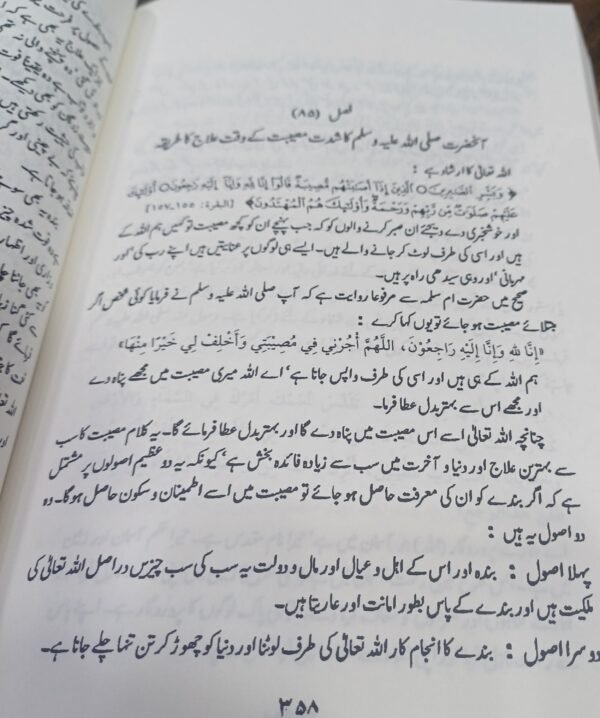 فصل (۸۵)
آنحضرت صلی اللہ علیہ وسلم کا شدت مصیبت کے وقت علاج کا طریقہ
اللہ تعالیٰ کا ارشاد ہے :
﴿ وَبَشِّرِ الصَّٰبِرِينَ○ الَّذِينَ إِذَا أَصَابَتْهُم مُّصِيبَةٌ قَالُوا إِنَّا لِلَّهِ وَإِنَّا إِلَيْهِ رَاجِعُونَ○ أُولَٰئِكَ
عَلَيْهِمْ صَلَوَاتٌ مِّن رَّبِّهِمْ وَرَحْمَةٌ وَأُولَٰئِكَ هُمُ الْمُهْتَدُونَ﴾ (البقرة: ۱۵۵، ۱۵۷)
اور خوشخبری دے دیجئے ان صبر کرنے والوں کو کہ جب پہنچے ان کو کچھ مصیبت تو کہیں ہم اللہ کے
ہیں اور اسی کی طرف لوٹ کر جانے والے ہیں۔ ایسے ہی لوگوں پر عنایتیں ہیں اپنے رب کی ’اور
مہربانی‘ اور وہی سیدھی راہ پر ہیں۔
صحیح میں حضرت ام سلمہ سے مرفوعا روایت ہے کہ آپ صلی اللہ علیہ وسلم نے فرمایا کوئی شخص اگر
مبتلائے مصیبت ہو جائے تو یوں کہا کرے :
«إِنَّا لِلّٰهِ وَإِنَّا إِلَيْهِ رَاجِعُوْنَ، اَللّٰهُمَّ أَجُرْنِي فِي مُصِيْبَتِي وَأَخْلِفْ لِي خَيْرًا مِنْهَا»
ہم اللہ کے ہی ہیں اور اسی کی طرف واپس جانا ہے‘ اے اللہ میری مصیبت میں مجھے پناہ دے
اور مجھے اس سے بہتر بدل عطا فرما۔
چنانچہ اللہ تعالیٰ اسے اس مصیبت میں پناہ دے گا اور بہتر بدل عطا فرمائے گا۔ یہ کلام مصیبت کا سب
سے بہترین علاج اور دنیا و آخرت میں سب سے زیادہ فائدہ بخش ہے‘ کیونکہ یہ دو عظیم اصولوں پر مشتمل
ہے کہ اگر بندے کو ان کی معرفت حاصل ہو جائے تو مصیبت میں اسے اطمینان و سکون حاصل ہوگا۔ وہ
دو اصول یہ ہیں :
پہلا اصول : بندہ اور اس کے اہل و عیال اور مال و دولت یہ سب کی سب چیزیں دراصل اللہ تعالیٰ کی
ملکیت ہیں اور بندے کے پاس بطور امانت اور عاریتا ہیں۔
دوسرا اصول : بندے کا انجام کار اللہ تعالیٰ کی طرف لوٹنا اور دنیا کو چھوڑ کر تن تنہا چلے جانا ہے۔
۳۵۸